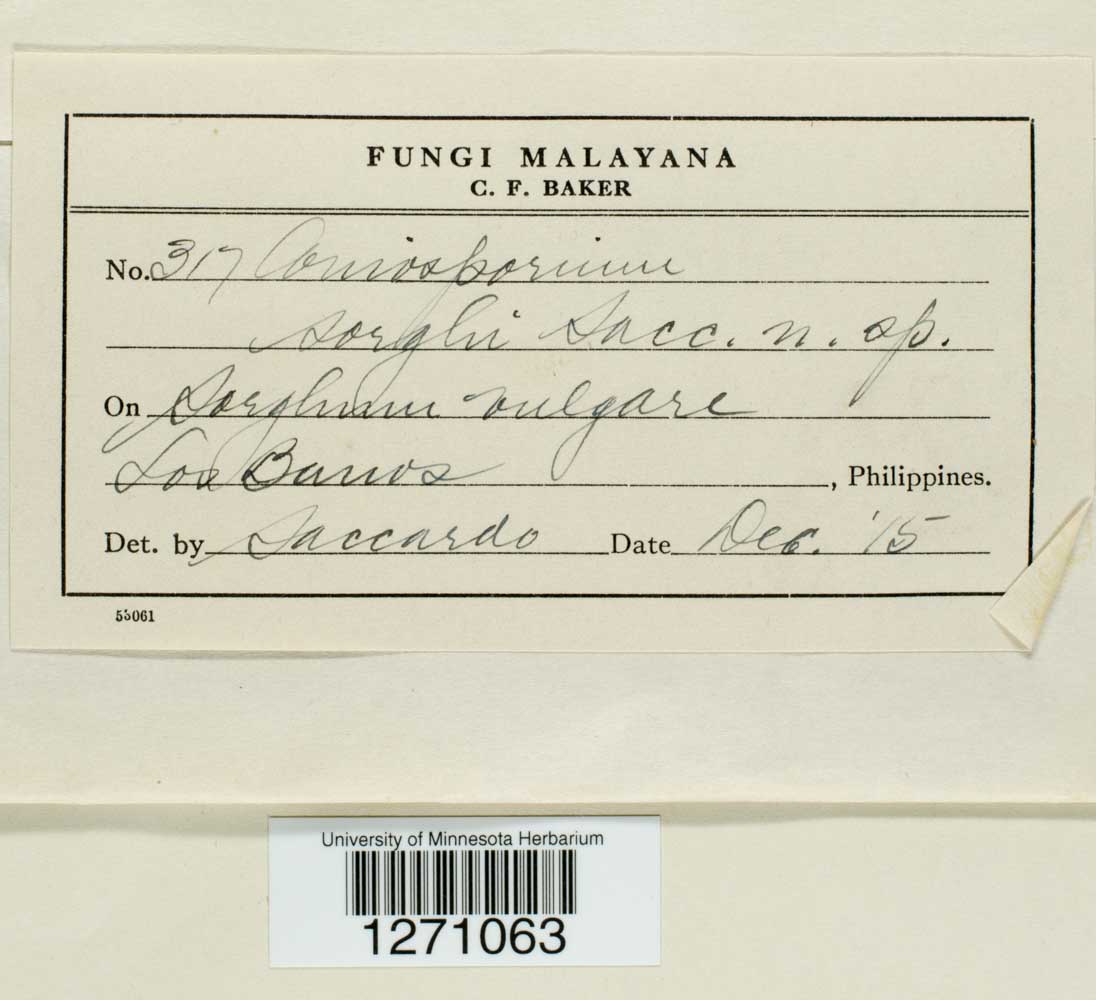 FUNGI MALAYANA
C. F. BAKER
No. 317 Coniosporium
sorghi Sacc. n. sp.
On Sorghum vulgare
Los Banos, Philippines.
Det. by Saccardo Date Dec. '15
55061
University of Minnesota Herbarium
1271063